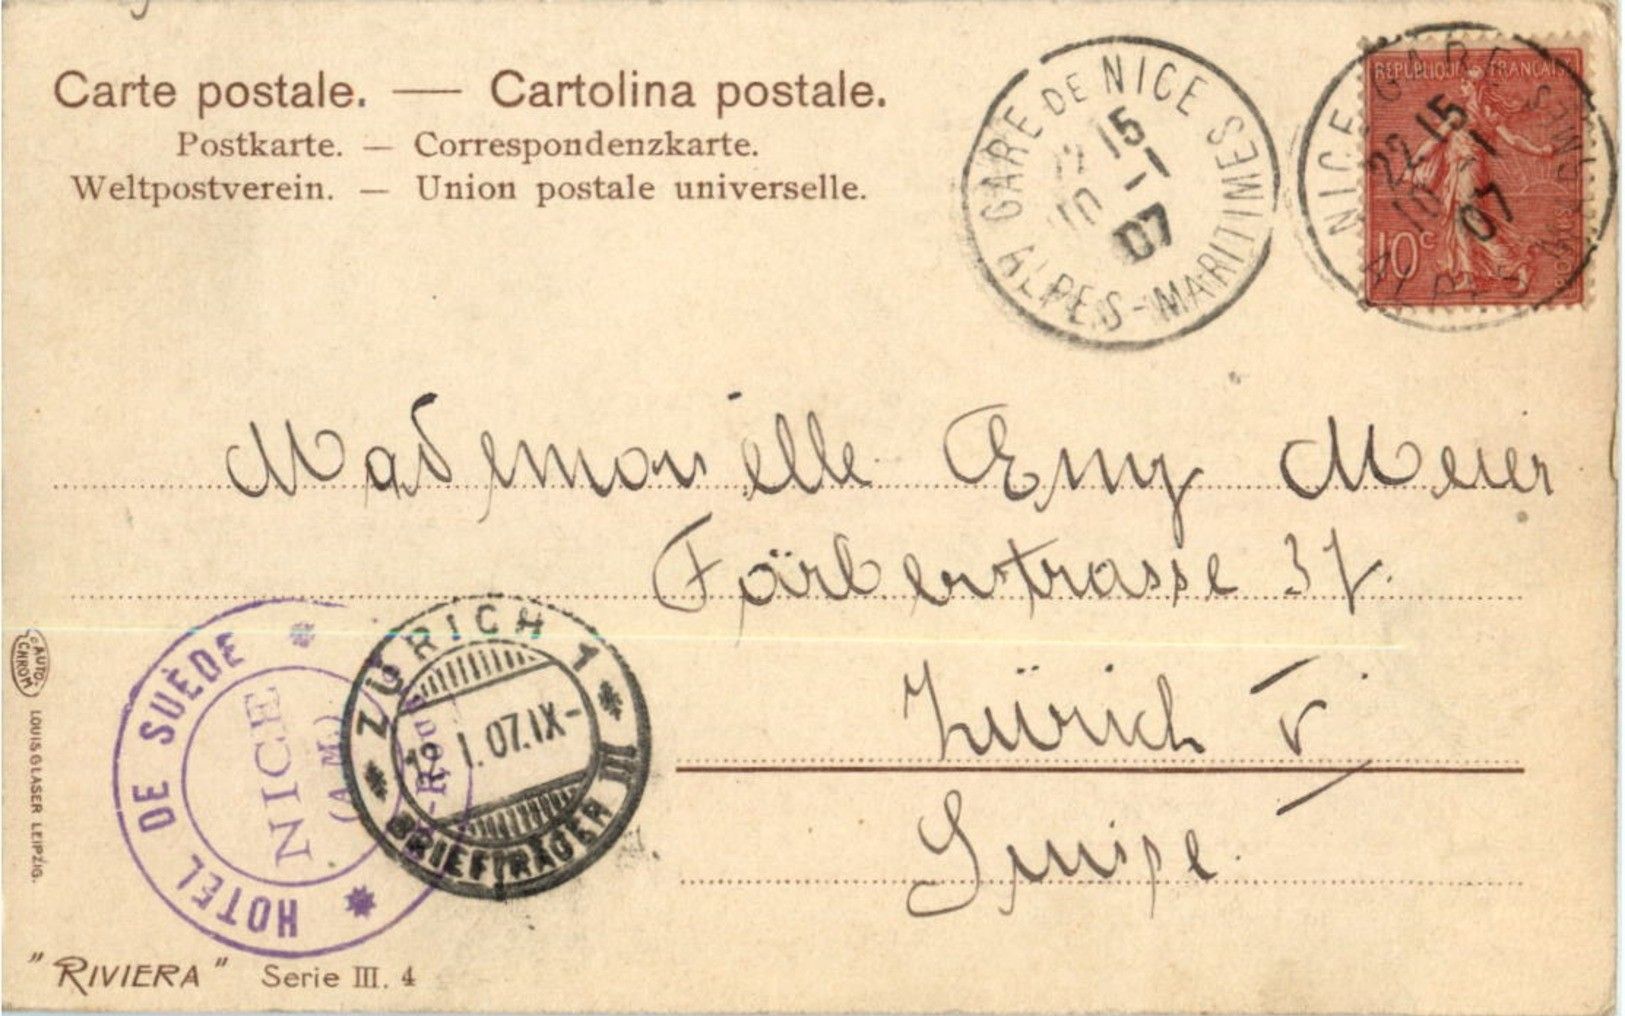 Carte postale. — Cartolina postale.
Postkarte. — Correspondenzkarte.
Weltpostverein. — Union postale universelle.
GARE DE NICE
22 15
10 -1
07
ALPES-MARITIMES
NICE GARE
22 15
10 -1
07
REPUBLIQUE FRANÇAISE
10c
Mademoiselle Emy Meier
Färberstrasse 37.
Zürich V.
Suisse.
HOTEL DE SUÈDE
NICE
(A.M.)
ZÜRICH 1
I.07.IX-
BRIEFTRÄGER III
AUTO-CHROM
LOUIS GLASER LEIPZIG.
"RIVIERA" Serie III. 4